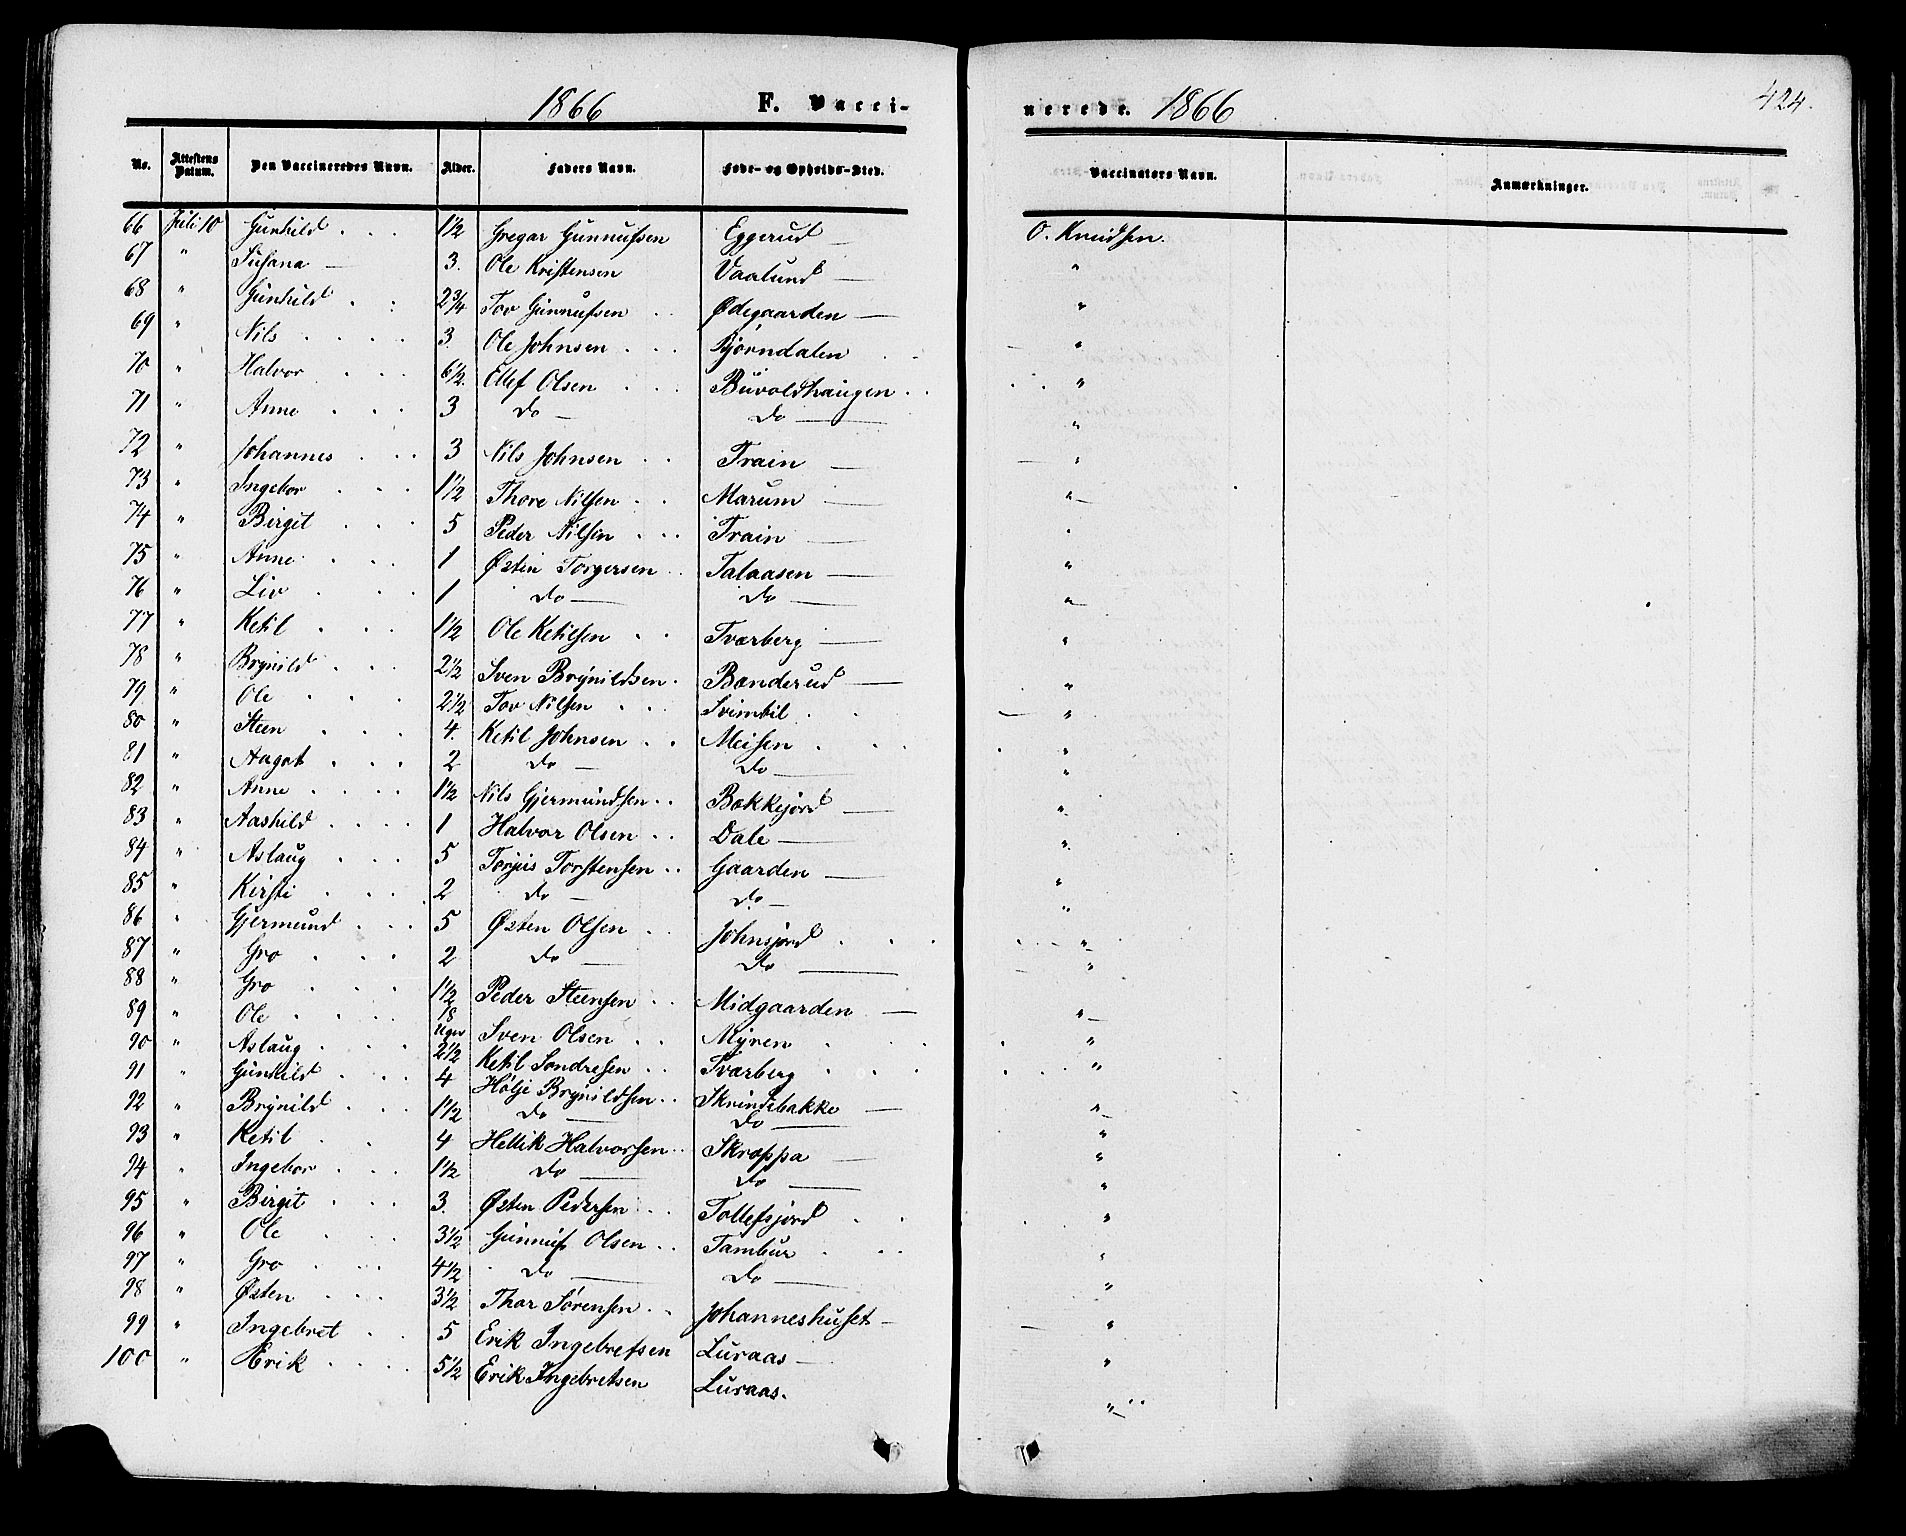 1866 F. Vacci- nerede. 1866 424.
No. Attestens Datum. Den Vaccineredes Navn. Alder. Faders Navn. Føde- og Opholds-Sted. Vaccinators Navn. Anmærkninger.
66 Juli 10 Gunhild . . . 1½ Gregar Gunnufsen Eggerud — O. Knudsen.
67 " Susana — 3. Ole Kristensen Vaalund — "
68 " Gunhild . . 2¾ Tov Gunnufsen . . Ødegaarden — "
69 " Nils . . . . 3. Ole Johnsen . . . Bjørndalen . . "
70 " Halvor . . . 6½. Ellef Olsen . . . Buvoldhaugen . . "
71 " Anne . . . 3 do — do — "
72 " Johannes . . . 3 Nils Johnsen . . Train — "
73 " Ingebor . . . 1½ Thore Nilsen . . Marum — "
74 " Birgit . . . 5 Peder Nilsen . . . Train — "
75 " Anne . . . 1 Østen Torgersen . . Talaasen — "
76 " Liv . . . 1 do — do — "
77 " Ketil . . . 1½ Ole Ketilsen . . Tværberg — "
78 " Brynild . . . 2½ Sven Brynildsen . Bænderud — "
79 " Ole . . . 2½ Tov Nilsen . . . Svimbil . . "
80 " Steen . . . 4. Ketil Johnsen . . Meisen . . . "
81 " Aagot . . . 2 do — do — "
82 " Anne . . . . 1½ Nils Gjermundsen . . Bakkejord — "
83 " Aashild . . . . 1 Halvor Olsen . . Dale — "
84 " Aslaug . . . 5 Torjus Torstensen . . Gaarden — "
85 " Kirsti . . . 2 do — do — "
86 " Gjermund . . . 5 Østen Olsen . . Johnsjord . . . "
87 " Gro . . . 2 do — do — "
88 " Gro . . . 1½ Peder Steensen . . Midgaarden — "
89 " Ole . . . . 18 Uger Sven Olsen . . Myren . . . "
90 " Aslaug . . . 2½ Ketil Sondresen . . Sværberg . . . "
91 " Gunhild . . . 4 Hølje Brynildsen . . Skrindebakke — "
92 " Brynild . . . 1½ do — do — "
93 " Ketil . . 4 Hellik Halvorsen . . Skroppa — "
94 " Ingebor . . . 1½ do — do — "
95 " Birgit . . . 3. Østen Pedersen . . . Tollefsjord . . "
96 " Ole . . . 3½ Gunnuf Olsen . . Tambur . . . "
97 " Gro . . . 4½ do — do — "
98 " Østen . . . 3½ Thor Sørensen . . Johanneshuset — "
99 " Ingebret . . 5 Erik Ingebretsen Luraas — "
100 " Erik . . . . 5½ Erik Ingebretsen Luraas. "